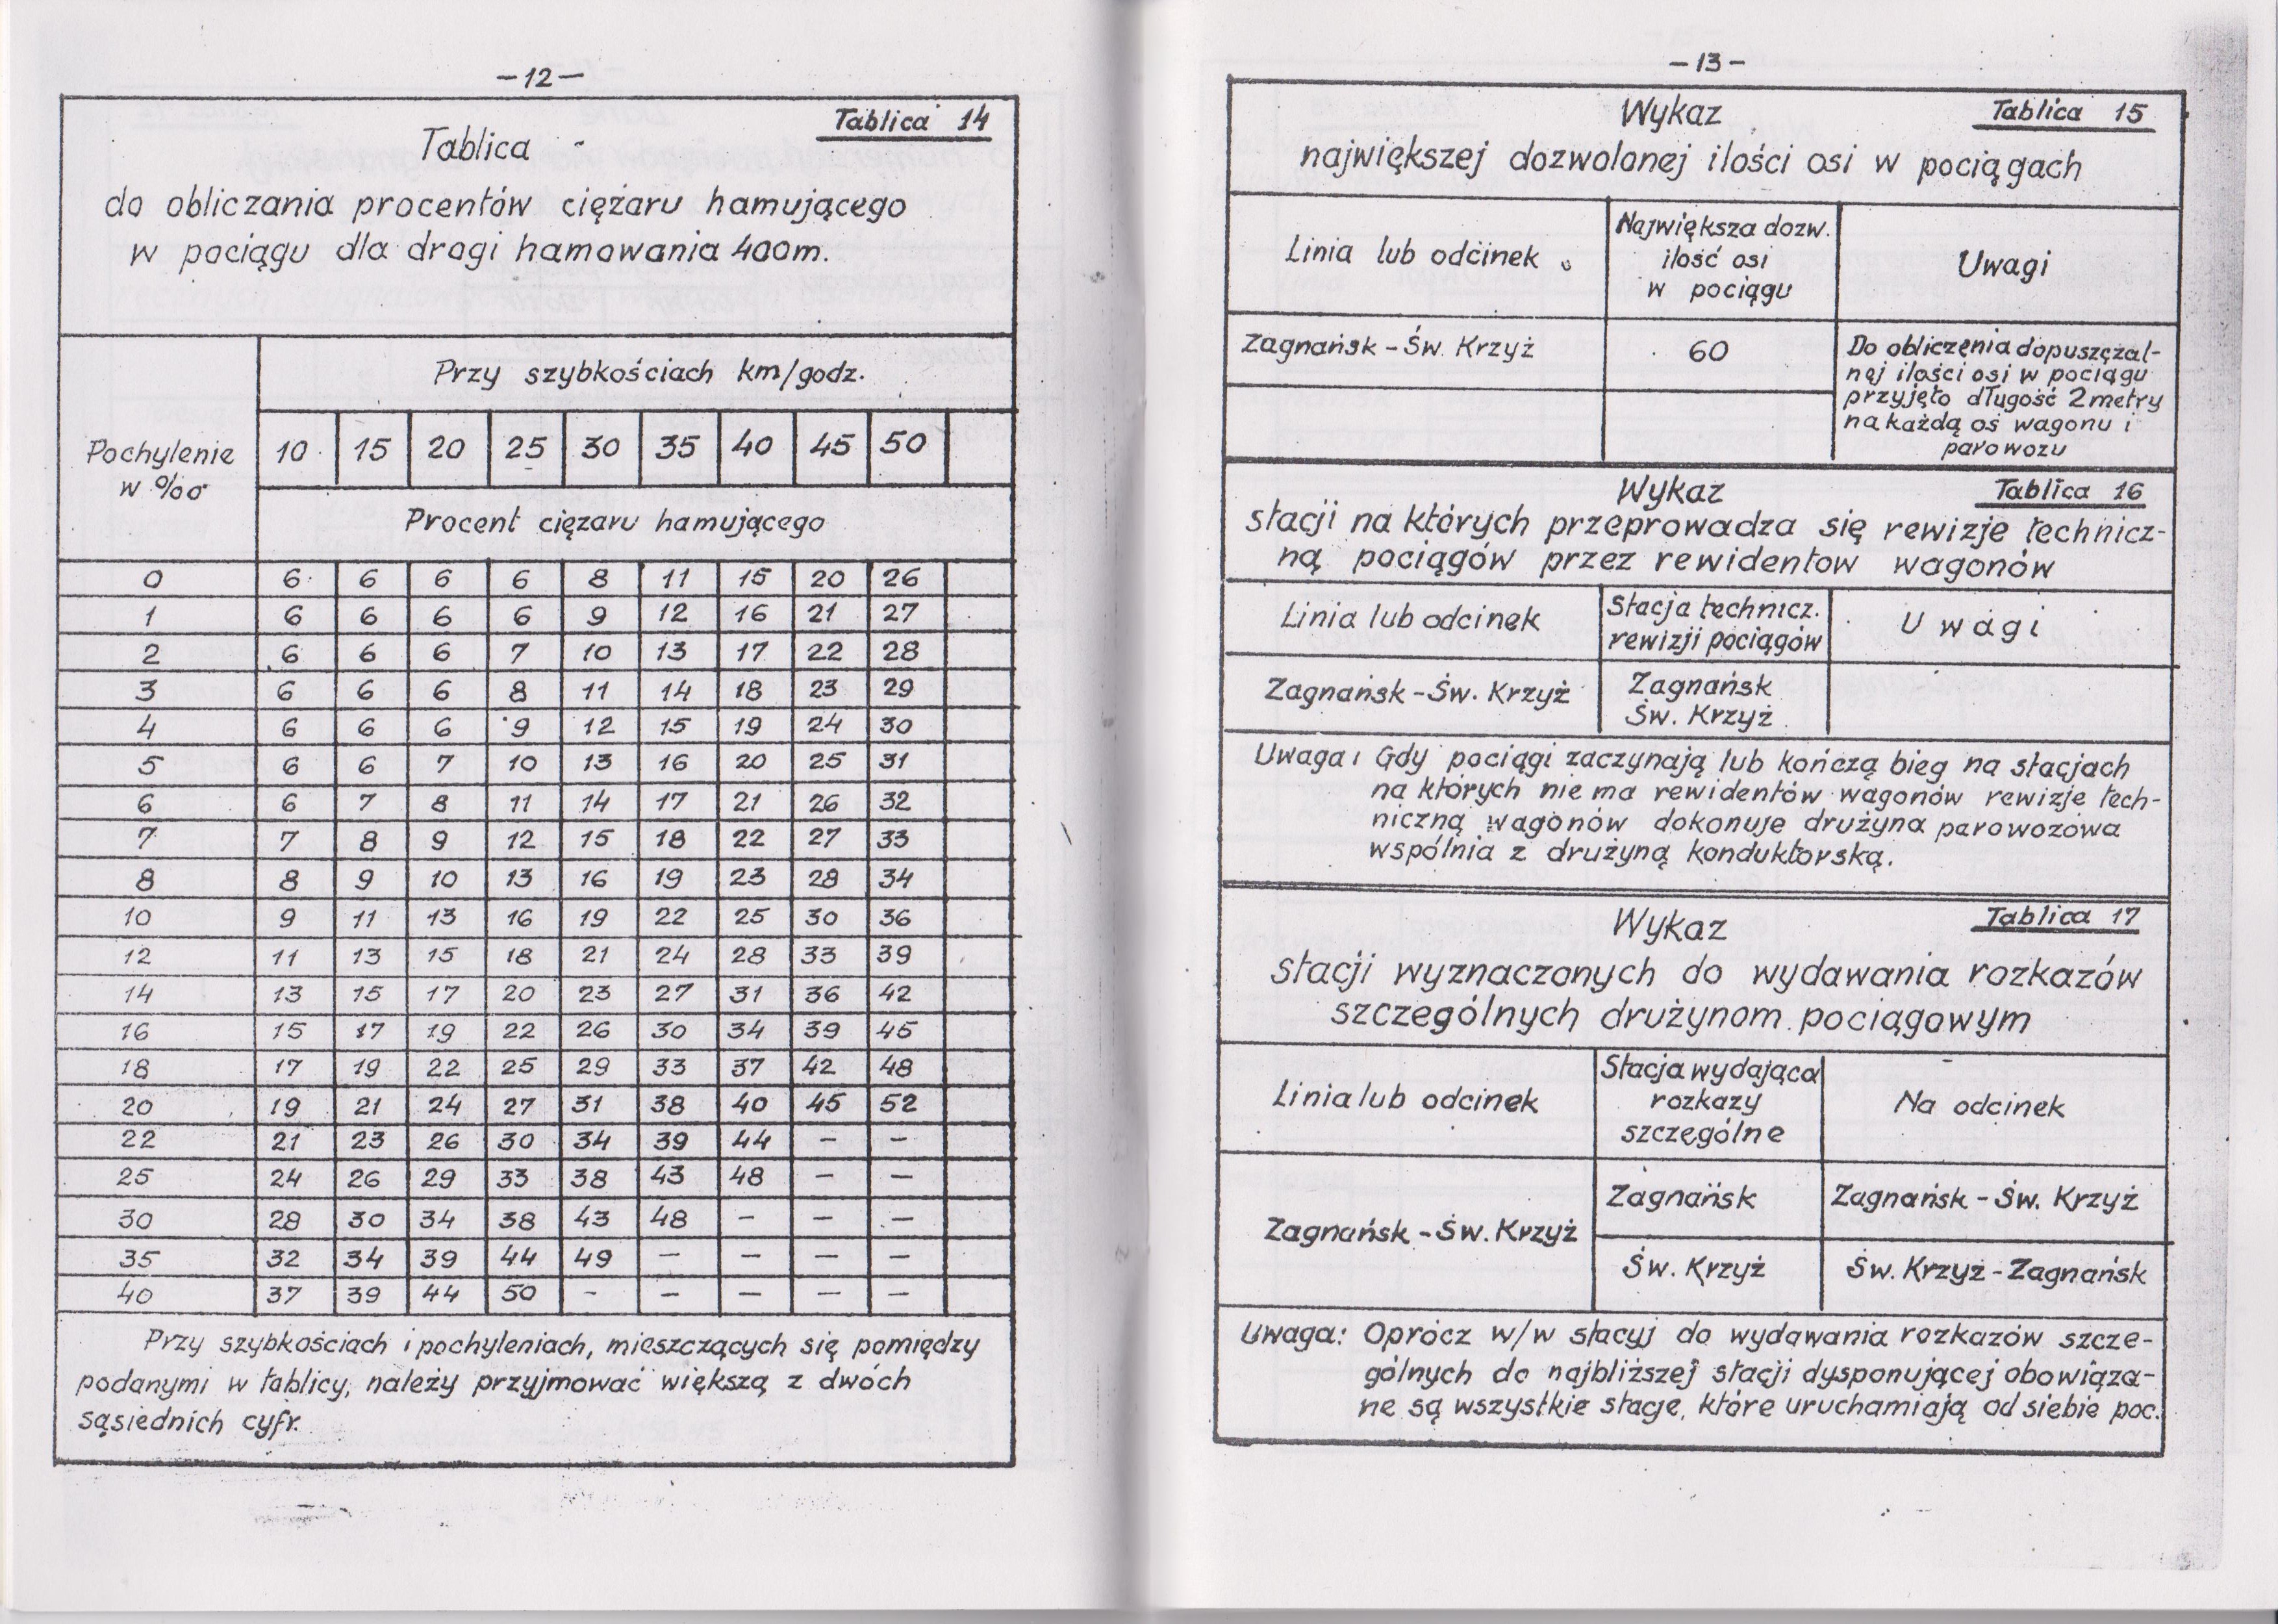 -12-
Tablica 14
Tablica -
do obliczania procentów ciężaru hamującego
w pociągu dla drogi hamowania 400m.
Pochylenie
w %oo
Przy szybkościach km/godz.
10 15 20 25 30 35 40 45 50
Procent ciężaru hamującego
0 6 6 6 6 8 11 15 20 26
1 6 6 6 6 9 12 16 21 27
2 6 6 6 7 10 13 17 22 28
3 6 6 6 8 11 14 18 23 29
4 6 6 6 9 12 15 19 24 30
5 6 6 7 10 13 16 20 25 31
6 6 7 8 11 14 17 21 26 32
7 7 8 9 12 15 18 22 27 33
8 8 9 10 13 16 19 23 28 34
10 9 11 13 16 19 22 25 30 36
12 11 13 15 18 21 24 28 33 39
14 13 15 17 20 23 27 31 36 42
16 15 17 19 22 26 30 34 39 45
18 17 19 22 25 29 33 37 42 48
20 19 21 24 27 31 38 40 45 52
22 21 23 26 30 34 39 44 - -
25 24 26 29 33 38 43 48 - -
30 28 30 34 38 43 48 - - -
35 32 34 39 44 49 - - - -
40 37 39 44 50 - - - - -
Przy szybkościach i pochyleniach, mieszczących się pomiędzy
podanymi w tablicy, należy przyjmować większą z dwóch
sąsiednich cyfr.
-13-
Wykaz
Tablica 15
największej dozwolonej ilości osi w pociągach
Linia lub odcinek
Największa dozw.
ilość osi
w pociągu
Uwagi
Zagnańsk - Św. Krzyż
60
Do obliczenia dopuszczal-
nej ilości osi w pociągu
przyjęto długość 2 metry
na każdą oś wagonu i
parowozu
Wykaz
Tablica 16
stacji na których przeprowadza się rewizje technicz-
ną pociągów przez rewidentow wagonów
Linia lub odcinek
Stacja technicz.
rewizji pociągów
Uwagi
Zagnańsk - Św. Krzyż
Zagnańsk
Św. Krzyż
Uwaga: Gdy pociągi zaczynają lub kończą bieg na stacjach
na których nie ma rewidentów wagonów rewizje tech-
niczną wagonów dokonuje drużyna parowozowa
wspólnia z drużyną konduktorską.
Wykaz
Tablica 17
stacji wyznaczonych do wydawania rozkazów
szczególnych drużynom pociągowym
Linia lub odcinek
Stacja wydająca
rozkazy
szczególne
Na odcinek
Zagnańsk - Św. Krzyż
Zagnańsk
Zagnańsk - Św. Krzyż
Św. Krzyż
Św. Krzyż - Zagnańsk
Uwaga: Oprócz w/w stacyj do wydawania rozkazów szcze-
gólnych do najbliższej stacji dysponującej obowiąza-
ne są wszystkie stacje, które uruchamiają od siebie poc.